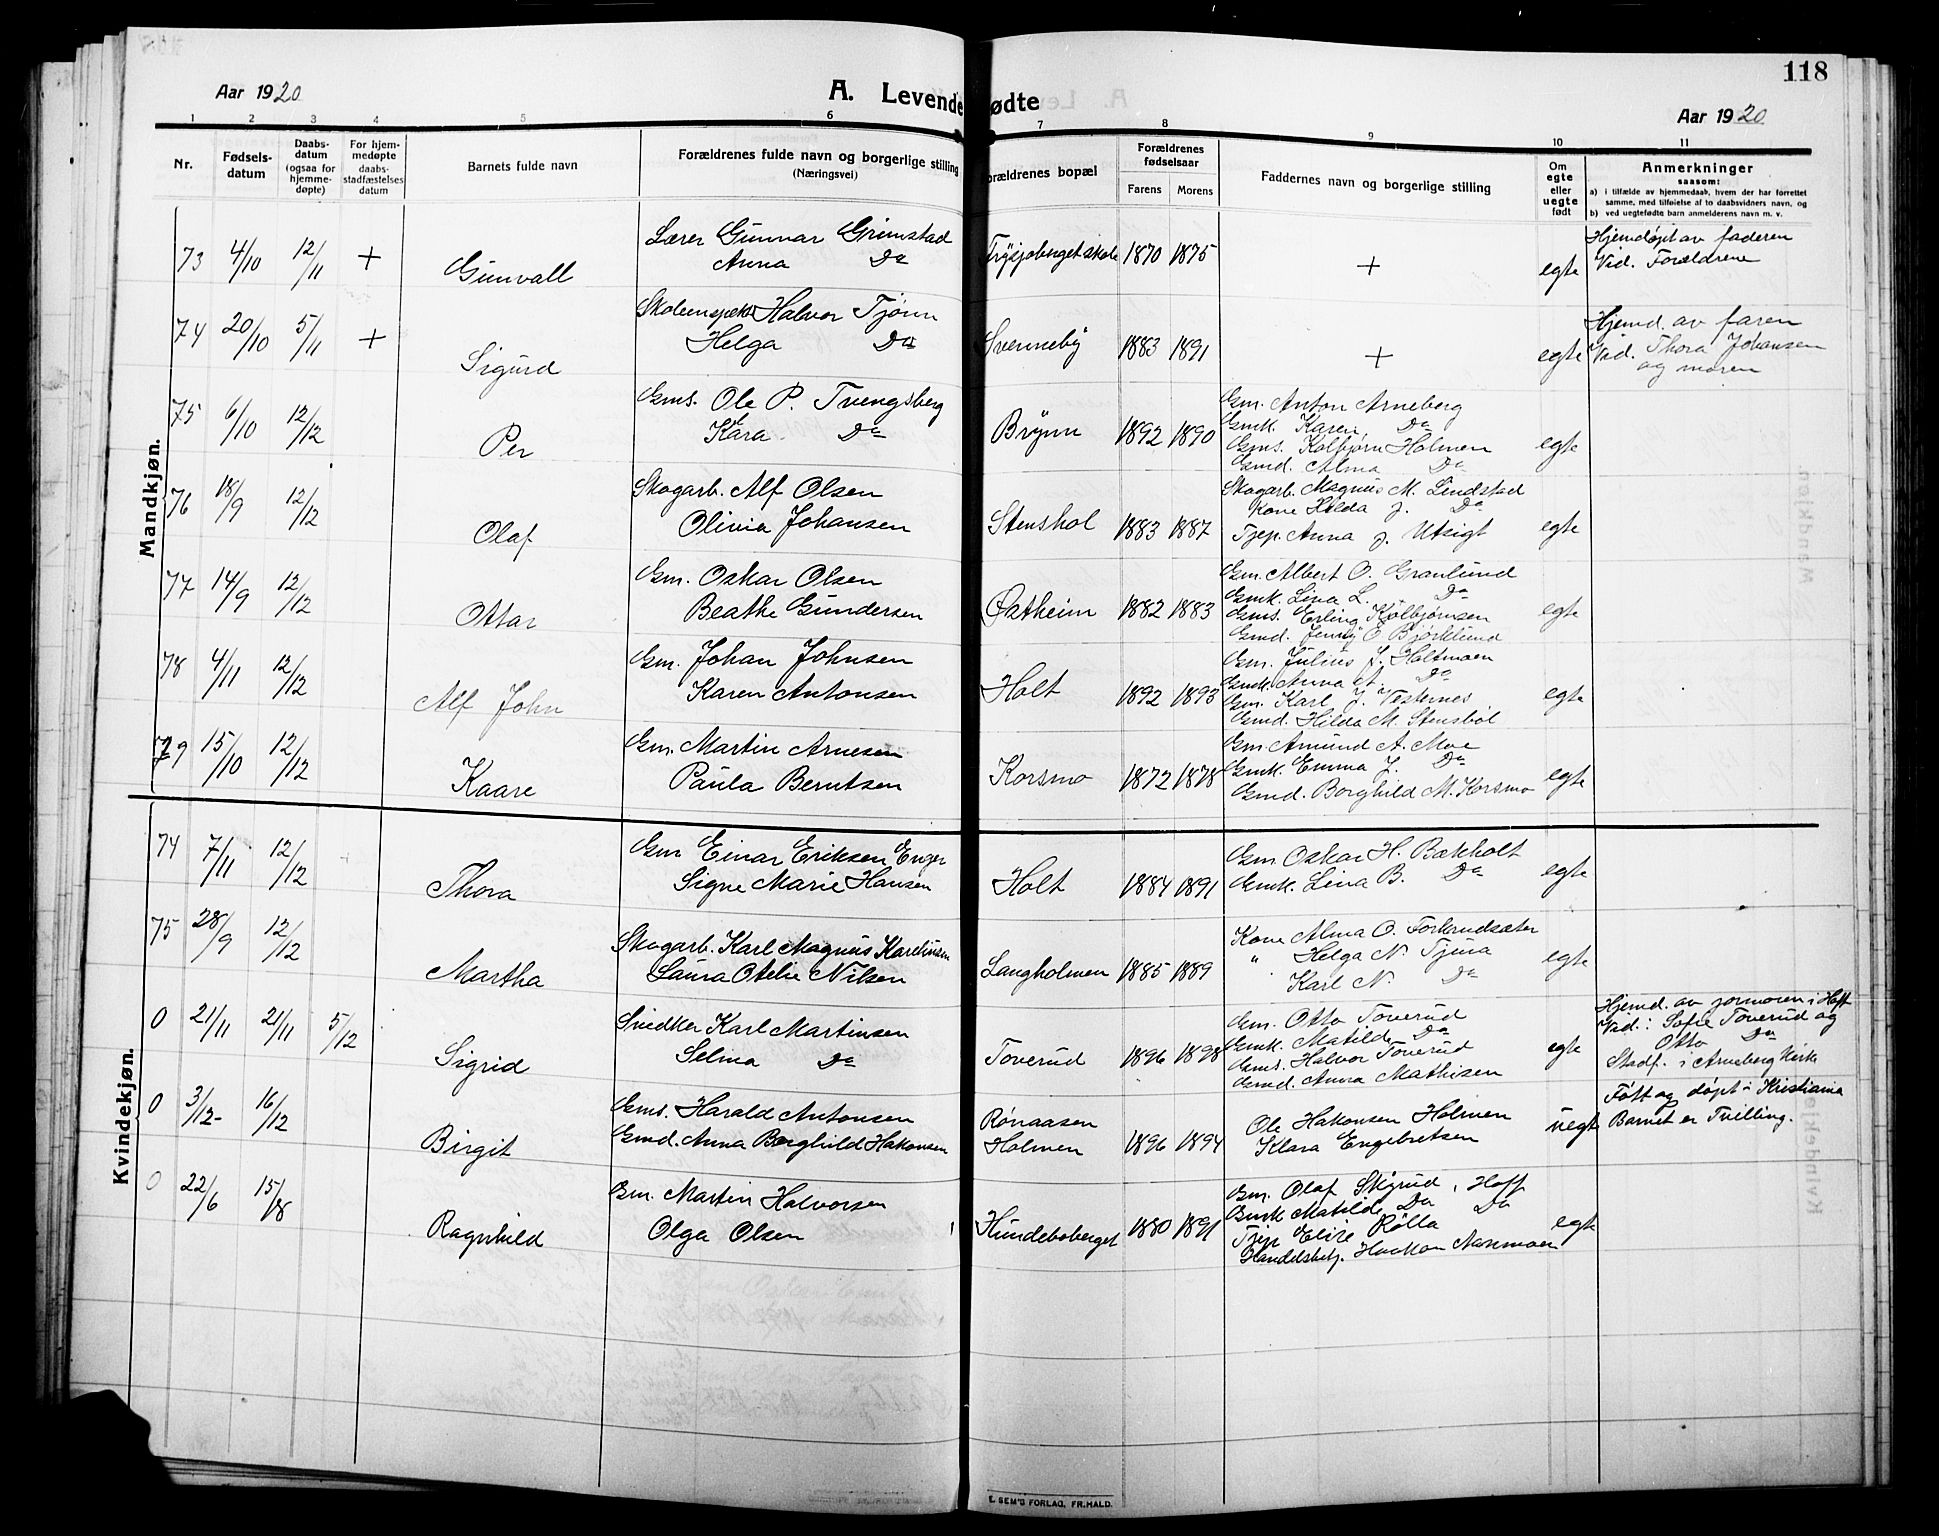 118
Aar 1920
A. Levendefødte
Aar 1920
1 2 3 4 5 6 7 8 9 10 11
Nr.
Fødsels-
datum
Daabs-
datum
(ogsaa for
hjemme-
døpte)
For hjem-
medøpte
daabs-
stadfæstelses
datum
Barnets fulde navn
Forældrenes fulde navn og borgerlige stilling
(Næringsvei)
Forældrenes bopæl
Forældrenes
fødselsaar
Farens Morens
Faddernes navn og borgerlige stilling
Om
egte
eller
uegte
født
Anmerkninger
saasom:
a) i tilfælde av hjemmedaab, hvem der har forrettet
samme, med tilføielse af to daabsvidners navn, og
b) ved uegtefødte barn anmelderens navn m. v.
Mandkjøn.
73 4/10 12/11 + Gunvall
Lærer Gunnar Grimstad
Anna Do
Trysjøberget skole 1870 1875 + egte
Hjemdøpt av faderen
Vid. Forældrene
74 20/10 5/11 + Sigurd
Skoleinspektør Halvor Tjønn
Helga Do
Svenneby 1883 1891 + egte
Hjemd. av faren
Vid. Thora Johansen
og moren
75 6/10 12/12 Per
Gms. Ole P. Tvengsberg
Kara Do
Brynn 1892 1890
Gm. Anton Arneberg
Gmk. Karen Do
Gms. Kolbjørn Holmen
Gmd. Alma Do
egte
76 18/9 12/12 Olaf
Skogarb. Alf Olsen
Olivia Johansen
Stenshol 1883 1887
Skogarb. Magnus M. Lindstad
Kone Hilda J. Do
Tjep. Anna J. Utsigt
egte
77 14/9 12/12 Ottar
Gm. Oskar Olsen
Beathe Gundersen
Østheim 1882 1883
Gm. Albert O. Granlund
Gmk. Lina L. Do
Gms. Erling Kolbjørnsen
Gmd. Jenny O. Bjørklund
egte
78 4/11 12/12 Alf John
Gm. Johan Johnsen
Karen Antonsen
Holt 1892 1893
Gm. Julius J. Holtmoen
Gmk. Anna A. Do
Gm. Karl J. Vesternes
Gmd. Hilda M. Stensbøl
egte
79 15/10 12/12 Kaare
Gm. Martin Arnesen
Paula Berntsen
Korsmo 1872 1878
Gm Amund A. Moe
Gmk. Emma J. Do
Gmd. Borghild M. Korsmo
egte
Kvindekjøn.
74 7/11 12/12 Thora
Gm Einar Eriksen Enger
Signe Marie Hansen
Holt 1884 1891
Gm. Oskar H. Bækholt
Gmk. Lina B. Do
egte
75 28/9 12/12 Martha
Skogarb. Karl Magnus Karelinsen
Laura Otelie Nilsen
Langholmen 1885 1889
Kone Alma O. Forkrudsæter
" Helga N. Tjura
Karl N. Do
egte
0 21/11 21/11 5/12 Sigrid
Snedker Karl Martinsen
Selma Do
Toverud 1896 1898
Gm. Otto Toverud
Gmk. Matilde Do
Gms. Halvor Toverud
Gmd. Anna Mathisen
egte
Hjemd. av jormoren i Hoff
Vid.: Sofie Toverud og
Otto Do
Stadf. i Arneberg Kirke
0 3/12 16/12 Birgit
Gms. Harald Antonsen
Gmd. Anna Borghild Hakonsen
Rønaasen
Holmen
1896 1894
Ole Hakonsen Holmen
Klara Engebretsen
uegte
Føtt og døpt i Kristiania
Barnet er Tvilling.
0 22/6 15/8 Ragnhild
Gm. Martin Halvorsen
Olga Olsen
Hundeboberget 1880 1891
Gm. Olaf Skjrud, Hoff
Gmk Matilde Do Do
Tjep Elise Rølla
Handelsbetj. Haakon Næsmoen
egte
E. SEM'S FORLAG, FR.HALD.